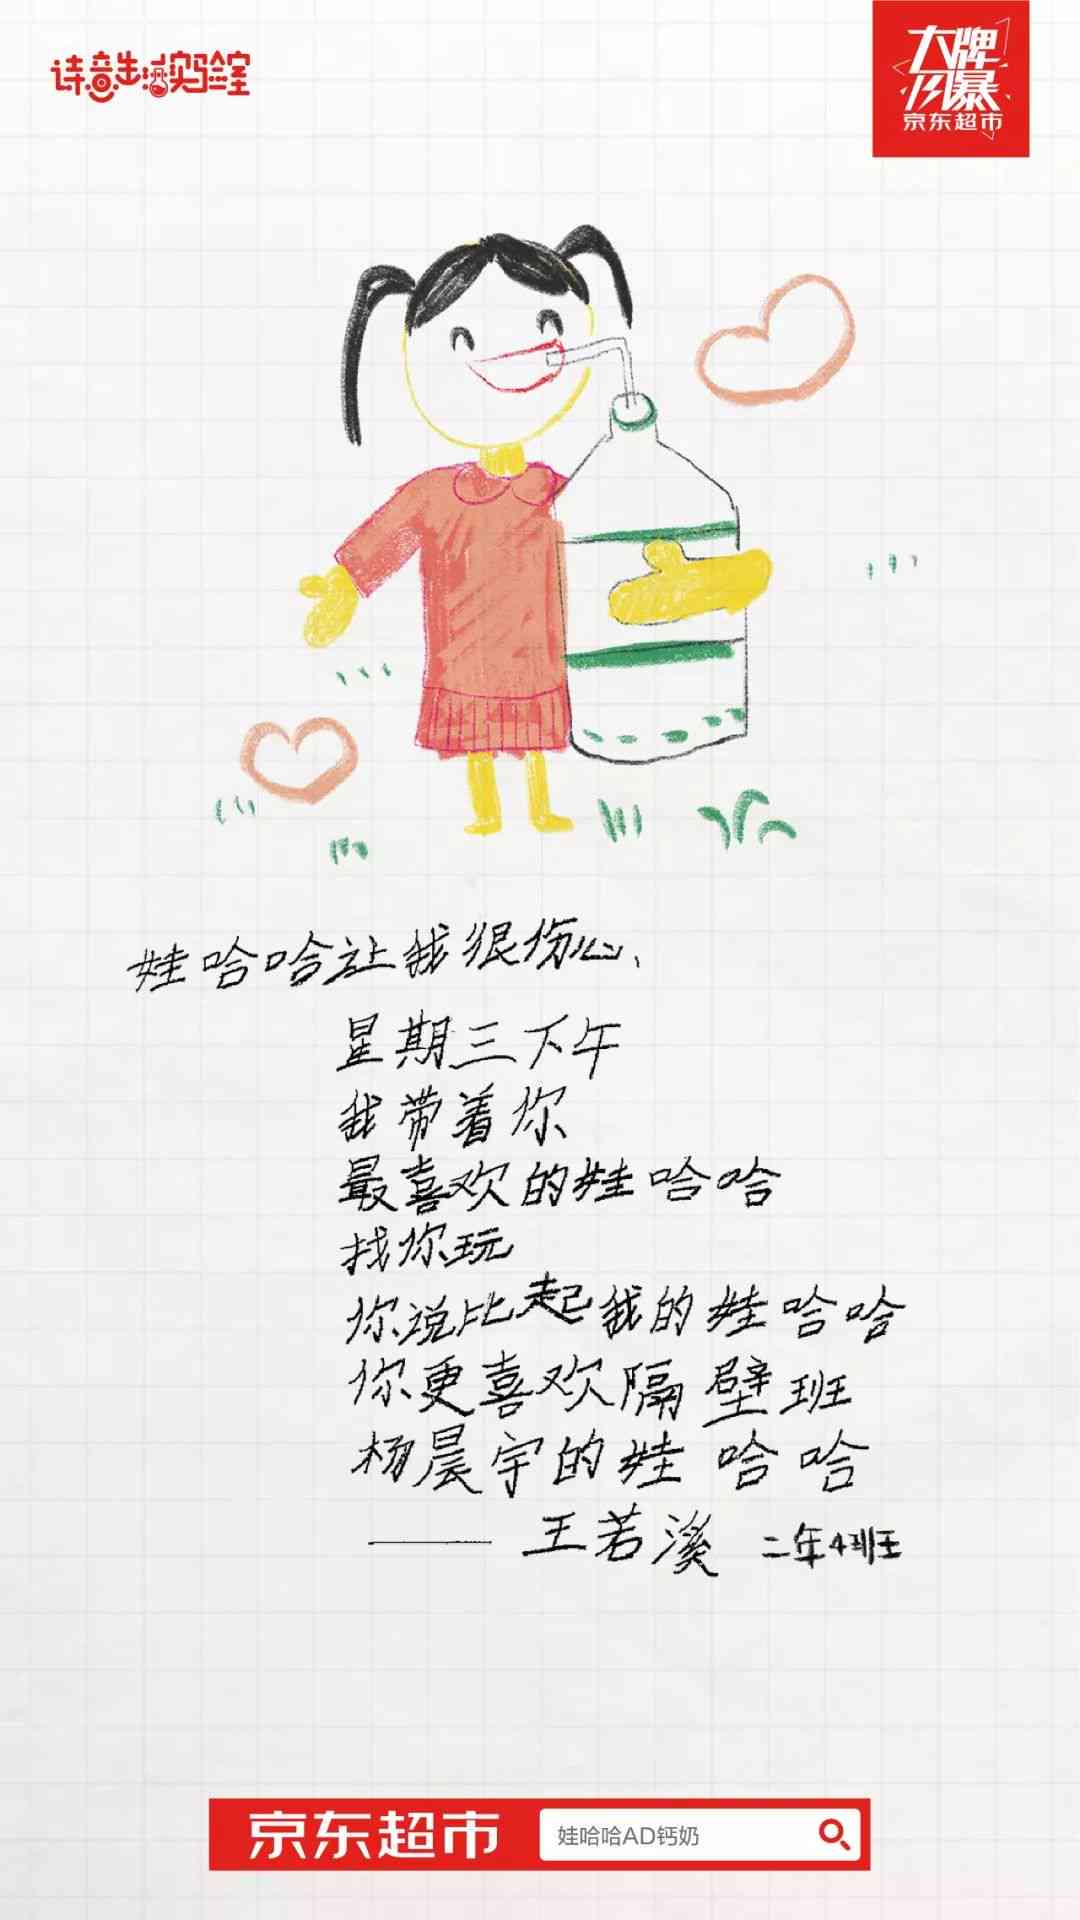 诗意生活实验室
大牌风暴
京东超市
娃哈哈让我很伤心、
星期三下午
我带着你
最喜欢的娃哈哈
找你玩
你说比起我的娃哈哈
你更喜欢隔壁班
杨晨宇的娃哈哈
—— 王若溪 二年4班
京东超市 娃哈哈AD钙奶